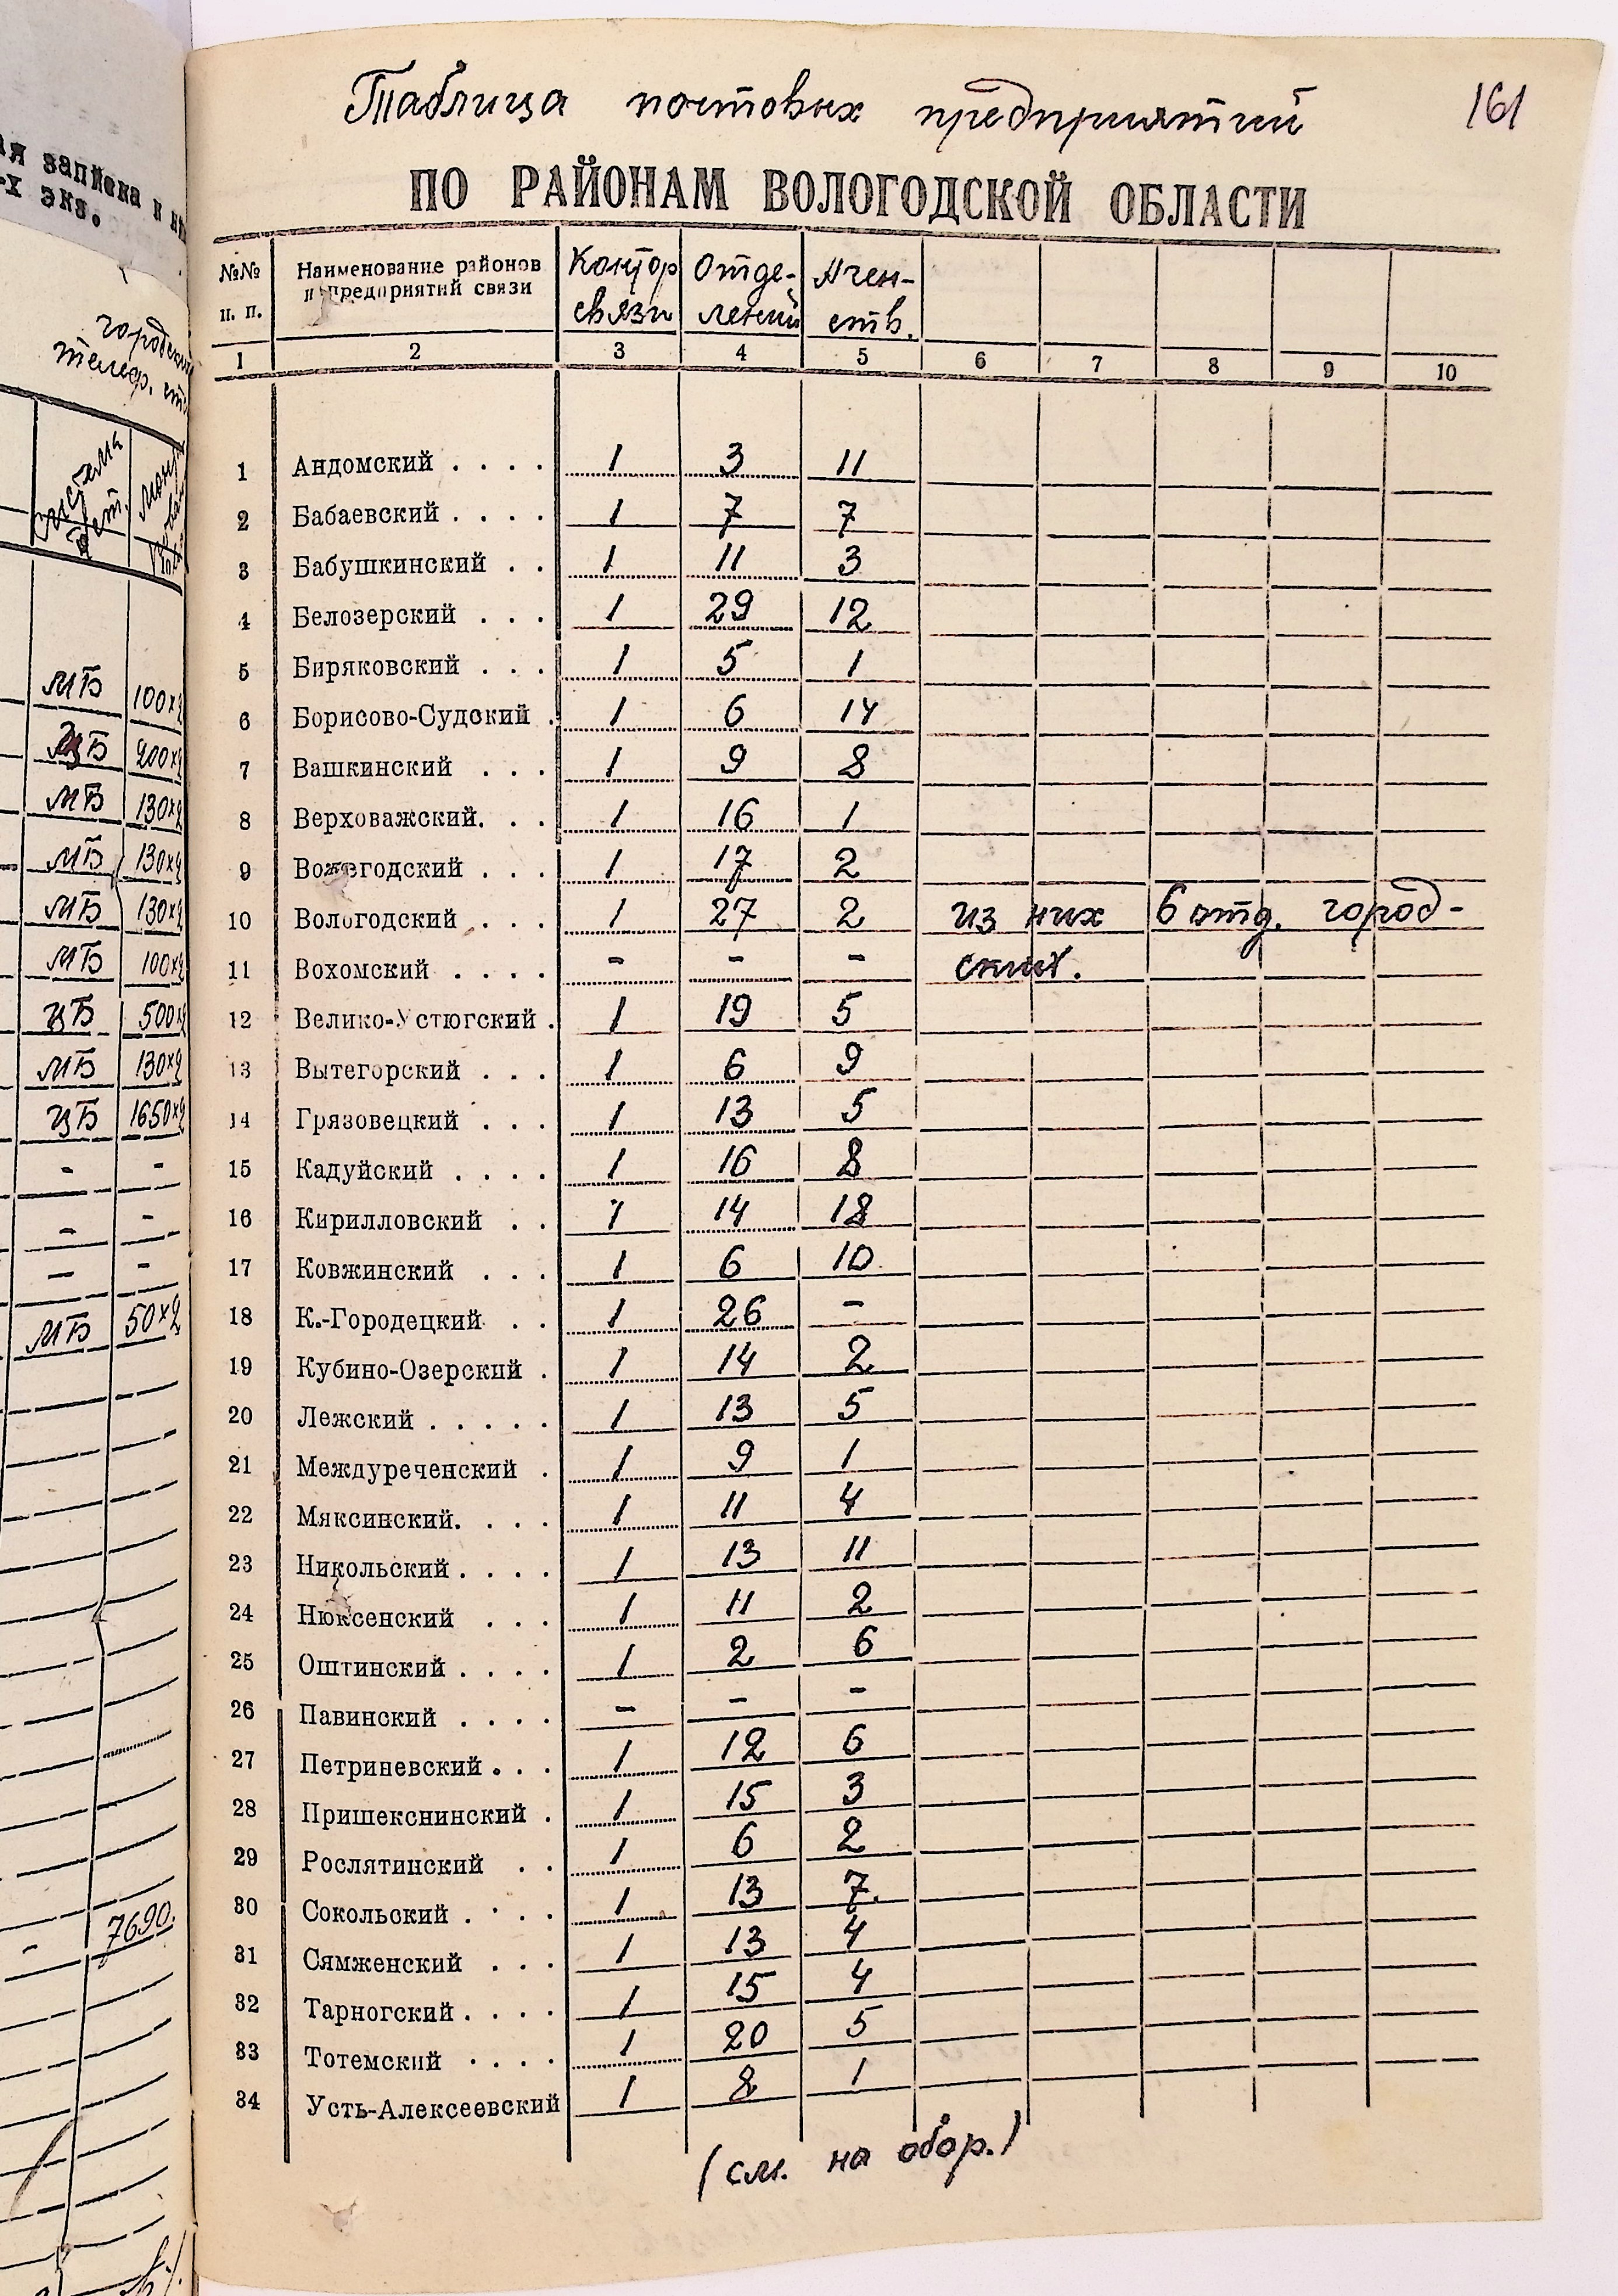 ая записка и
-х экз.
городских
телеф. ст
система ст.
МБ 100х2
ЦБ 200х2
МБ 130х2
МБ 130х2
МБ 130х2
МБ 100х2
ЦБ 500х2
МБ 130х2
ЦБ 1650х2
- -
- -
- -
МБ 50х2
- 7690.
Таблица почтовых предприятий 161
ПО РАЙОНАМ ВОЛОГОДСКОЙ ОБЛАСТИ
№№ п. п. Наименование районов и предприятий связи Контор связи Отделений Агентств.
1 2 3 4 5 6 7 8 9 10
1 Андомский . . . . 1 3 11
2 Бабаевский . . . . 1 7 7
3 Бабушкинский . . 1 11 3
4 Белозерский . . . 1 29 12
5 Биряковский . . . 1 5 1
6 Борисово-Судский . 1 6 14
7 Вашкинский . . . 1 9 8
8 Верховажский. . . 1 16 1
9 Вожегодский . . . 1 17 2
10 Вологодский . . . 1 27 2 из них 6 отд. город-
11 Вохомский . . . . - - - ских.
12 Велико-Устюгский . 1 19 5
13 Вытегорский . . . 1 6 9
14 Грязовецкий . . . 1 13 5
15 Кадуйский . . . . 1 16 8
16 Кирилловский . . 1 14 18
17 Ковжинский . . . 1 6 10
18 К.-Городецкий . . 1 26 -
19 Кубино-Озерский . 1 14 2
20 Лежский . . . . . 1 13 5
21 Междуреченский . 1 9 1
22 Мяксинский. . . . 1 11 4
23 Никольский . . . . 1 13 11
24 Нюксенский . . . 1 11 2
25 Оштинский . . . . 1 2 6
26 Павинский . . . . - - -
27 Петриневский . . . 1 12 6
28 Пришекснинский . 1 15 3
29 Рослятинский . . 1 6 2
30 Сокольский . . . . 1 13 7.
31 Сямженский . . . 1 13 4
32 Тарногский . . . . 1 15 4
33 Тотемский . . . . 1 20 5
34 Усть-Алексеевский 1 8 1
(см. на обор.)